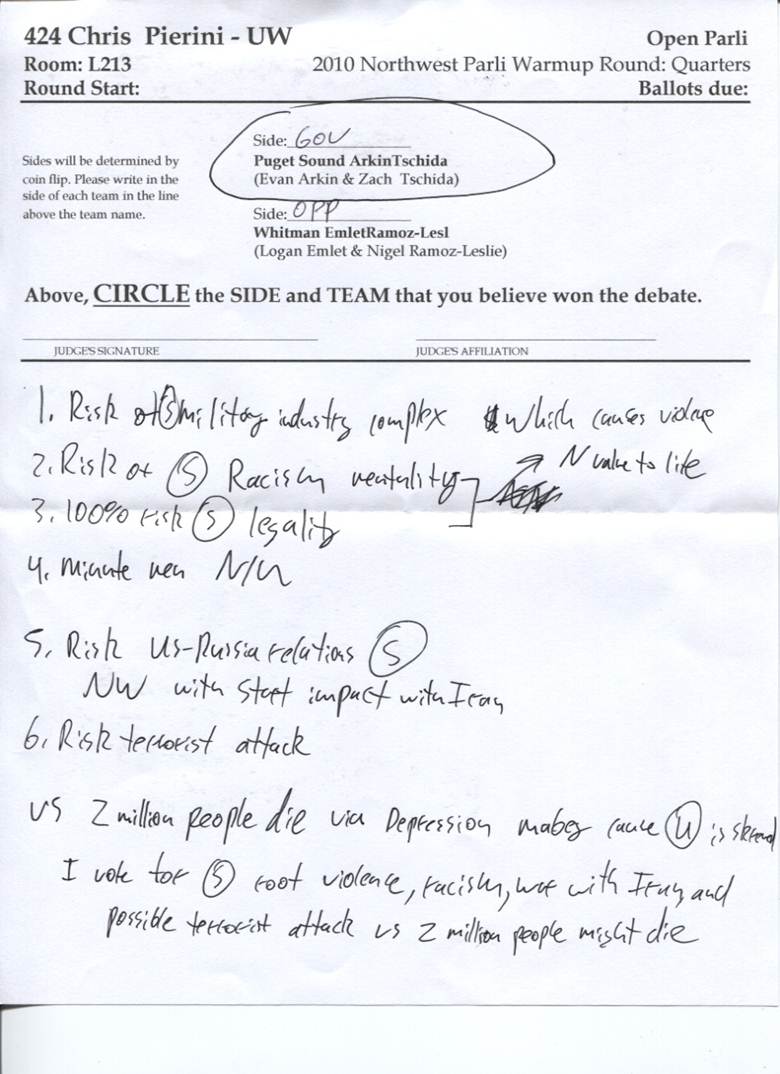 424 Chris Pierini - UW
Open Parli
Room: L213
2010 Northwest Parli Warmup Round: Quarters
Round Start:
Ballots due:
Sides will be determined by
coin flip. Please write in the
side of each team in the line
above the team name.
Side: GOV
Puget Sound ArkinTschida
(Evan Arkin & Zach Tschida)
Side: OPP
Whitman EmletRamoz-Lesl
(Logan Emlet & Nigel Ramoz-Leslie)
Above, CIRCLE the SIDE and TEAM that you believe won the debate.
JUDGE'S SIGNATURE
JUDGE'S AFFILIATION
1. Risk of S military industry complex which causes violence
2. Risk of S Racism mentality → N value to life
3. 100% risk S legality
4. Minute men N/U
5. Risk US-Russia relations S
NW with Start impact with Iran
6. Risk terrorist attack
VS 2 million people die via Depression mabey cause U is
I vote for S root violence, racism, war with Iran, and
possible terrorist attack vs 2 million people might die